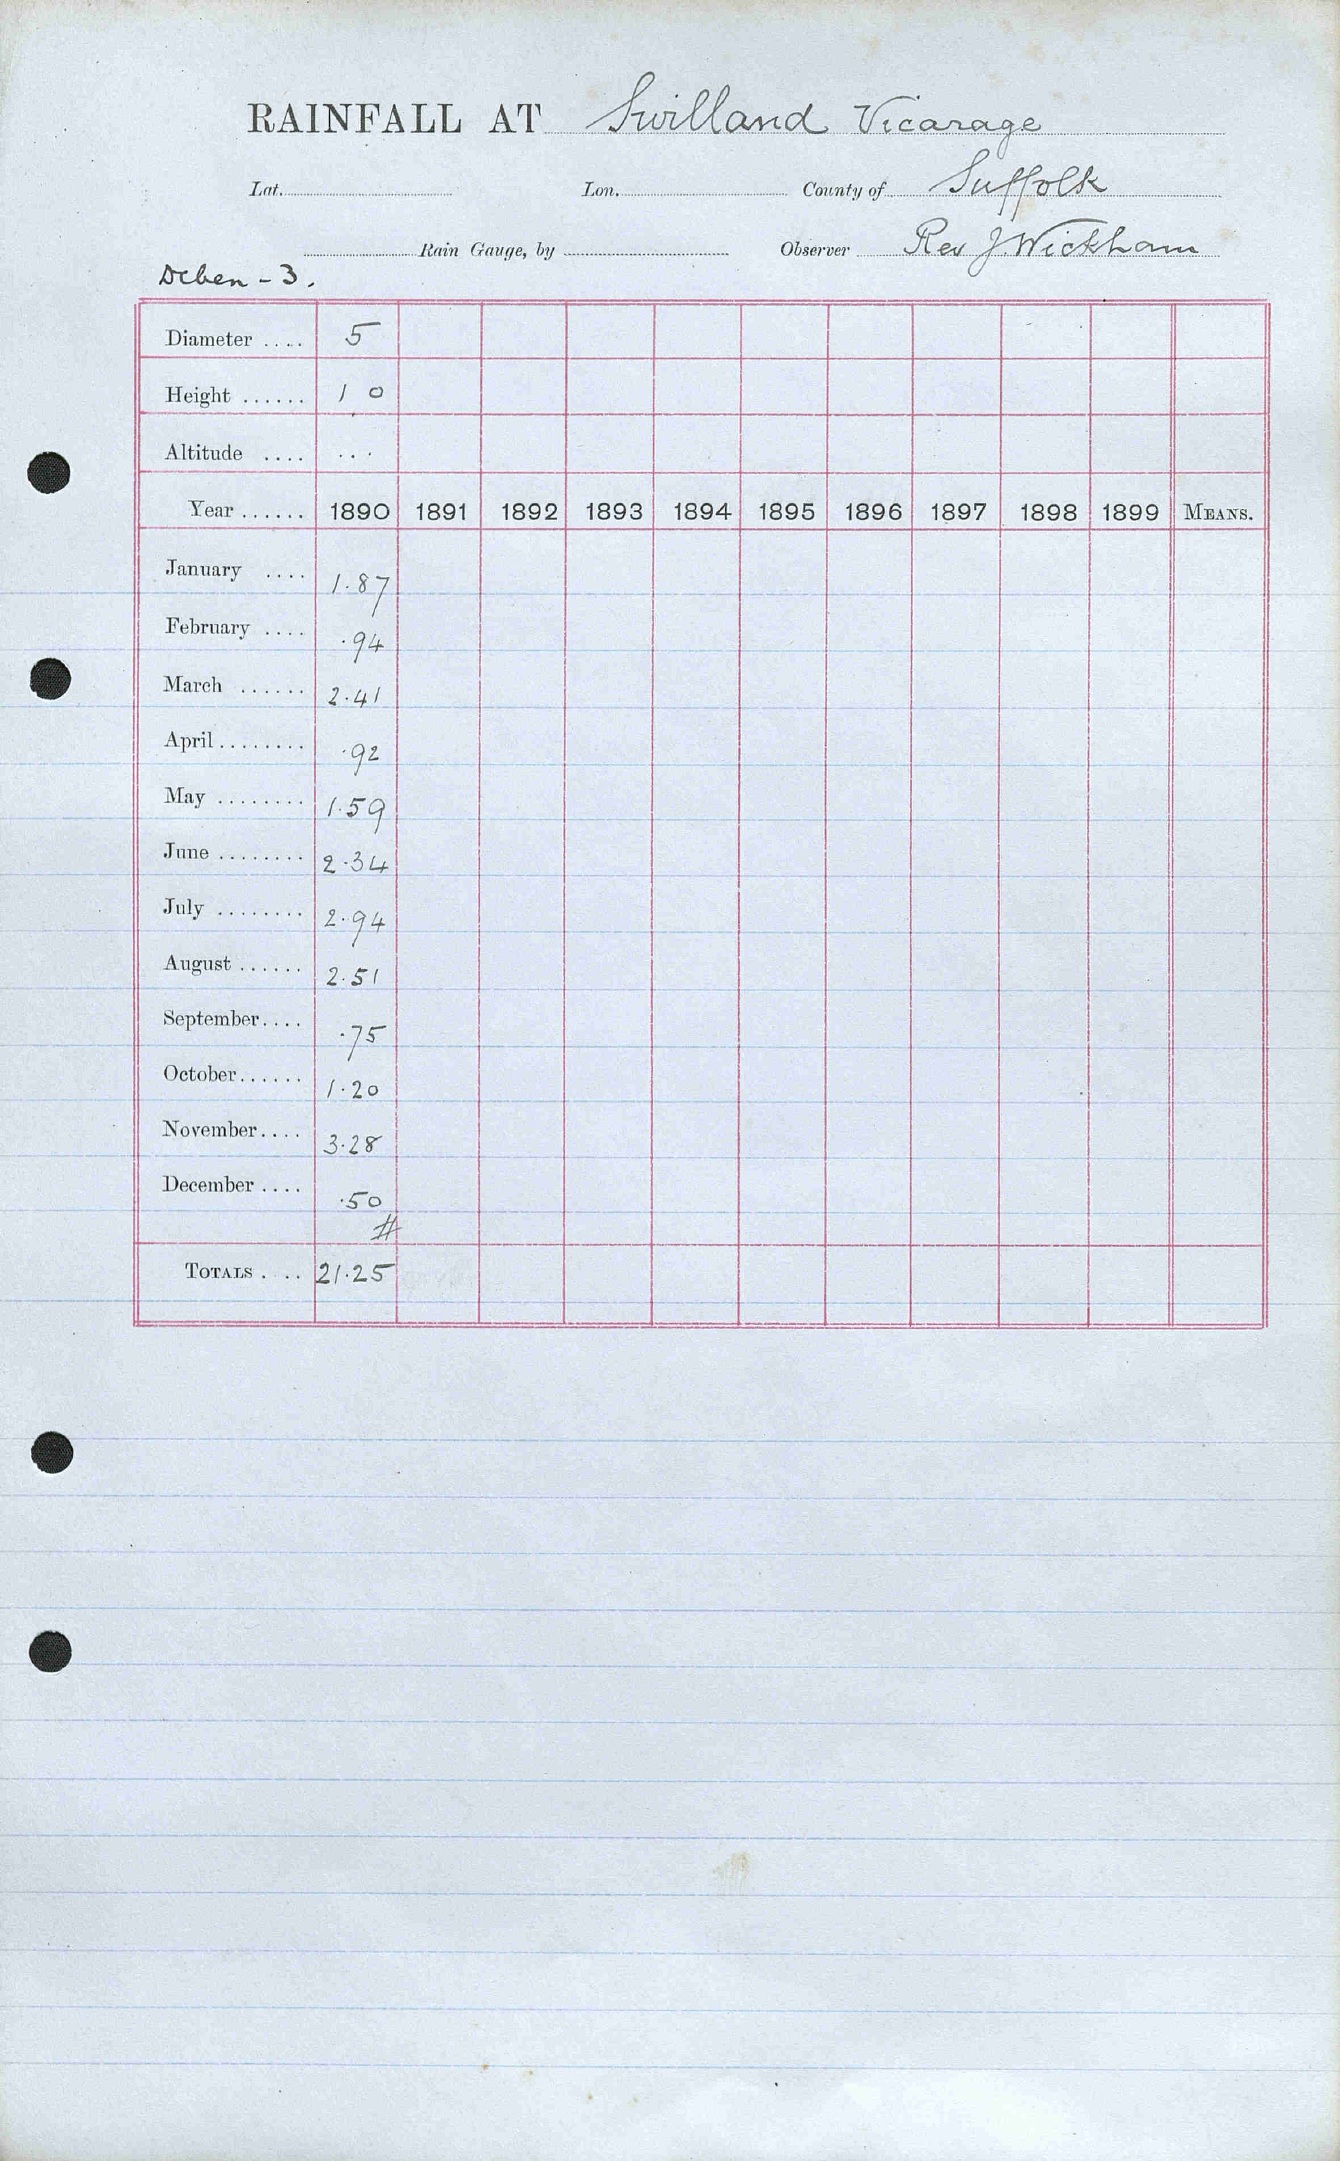 RAINFALL AT Swilland Vicarage
Lat. Lon. County of Suffolk
Rain Gauge, by Observer Rev J. Wickham
Deben - 3.
Diameter .... 5
Height ...... 1 0
Altitude .... ...
Year ...... 1890 1891 1892 1893 1894 1895 1896 1897 1898 1899 MEANS.
January .... 1.87
February .... .94
March ...... 2.41
April ........ .92
May ........ 1.59
June ........ 2.34
July ........ 2.94
August ...... 2.51
September .... .75
October ...... 1.20
November .... 3.28
December .... .50
#
TOTALS .... 21.25